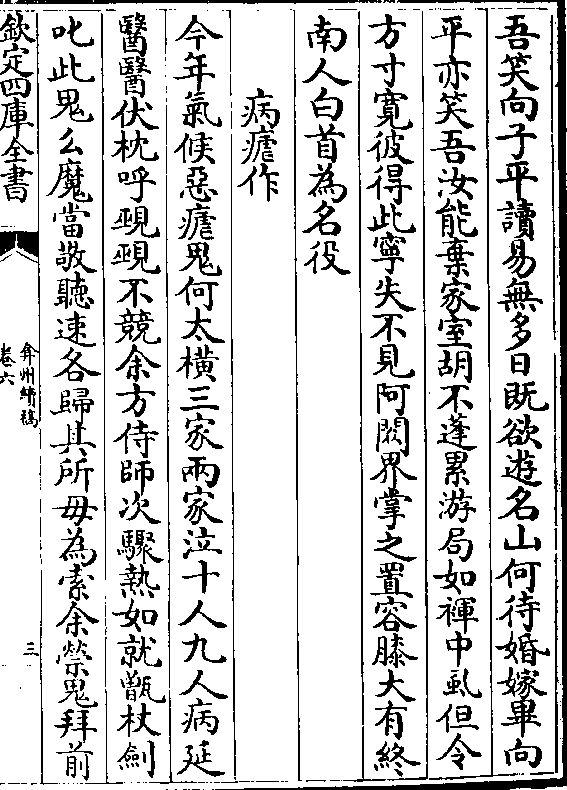 吾笑向子平讀易無多日既欲遊名山何待婚嫁畢向
平亦笑吾汝能棄家室胡不蓬累游局如褌中虱但令
方寸寛彼得此寧失不見阿閦界掌之置容膝大有終
南人白首為名役
病瘧作
今年氣候惡瘧鬼何太横三家兩家泣十人九人病延
醫醫伏枕呼覡覡不競余方侍師次驟熱如就甑杖劍
叱此鬼么魔當敬聽速各歸其所毋為索余縈鬼拜前
欽定四庫全書
弇州續稿
卷六
三